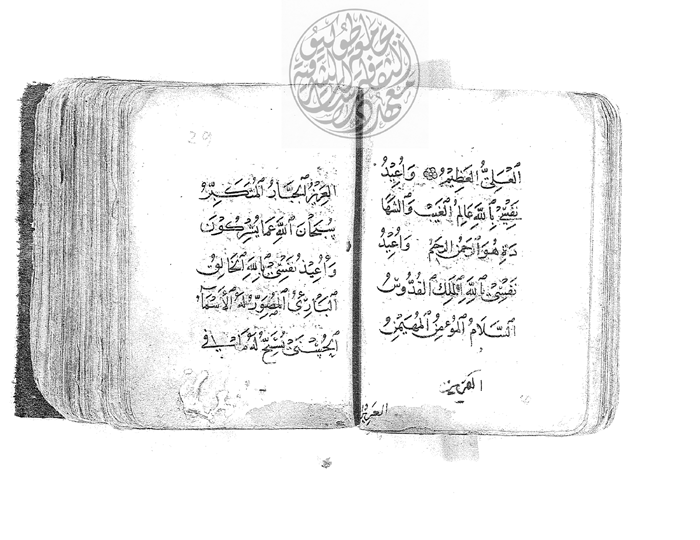 العَلِيُّ العَظِيمُ وَأُعِيذُ
نَفْسِي بِاللَّهِ عَالِمِ الغَيْبِ وَالشَّهَا
دَةِ هُوَ الرَّحْمَنُ الرَّحِيمُ وَأُعِيذُ
نَفْسِي بِاللَّهِ المَلِكِ القُدُّوسُ
السَّلَامُ المُؤْمِنُ المُهَيْمِنُ
العزيز
العزيز
29
العَزِيزُ الجَبَّارُ المُتَكَبِّرُ
سُبْحَانَ اللَّهِ عَمَّا يُشْرِكُونَ
وَأُعِيذُ نَفْسِي بِاللَّهِ الخَالِقُ
البَارِئُ المُصَوِّرُ لَهُ الأَسْمَآءُ
الحُسْنَى يُسَبِّحُ لَهُ مَا فِي